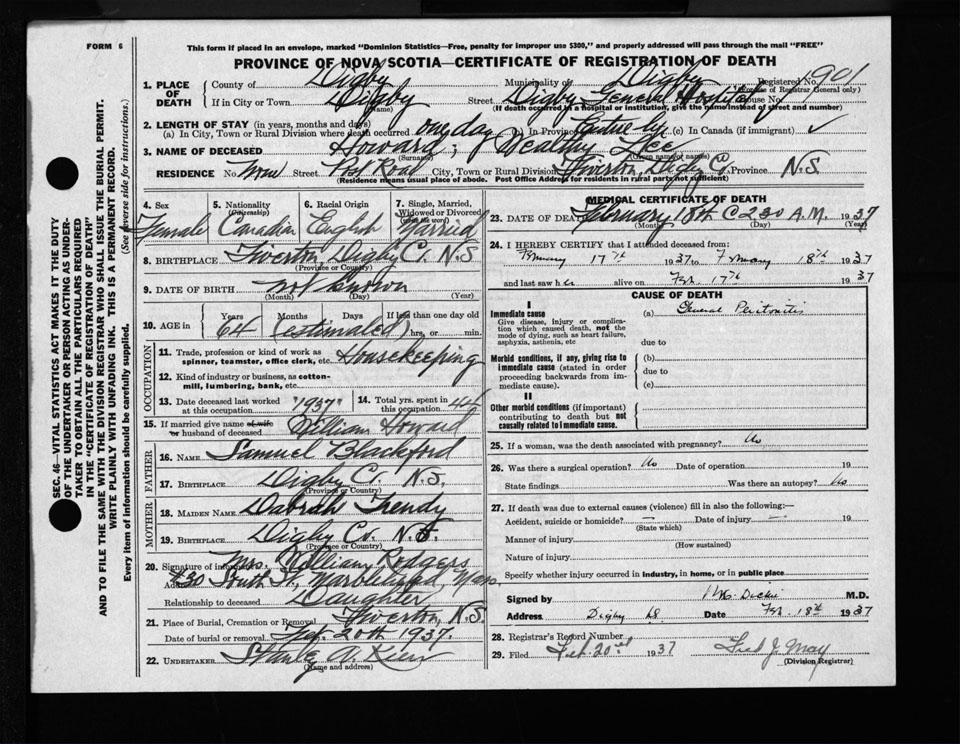 FORM 6
This form if placed in an envelope, marked "Dominion Statistics—Free, penalty for improper use $300," and properly addressed will pass through the mail "FREE"
PROVINCE OF NOVA SCOTIA—CERTIFICATE OF REGISTRATION OF DEATH
SEC. 46—VITAL STATISTICS ACT MAKES IT THE DUTY
OF THE UNDERTAKER OR PERSON ACTING AS UNDER-
TAKER TO OBTAIN ALL THE PARTICULARS REQUIRED
IN THE "CERTIFICATE OF REGISTRATION OF DEATH"
AND TO FILE THE SAME WITH THE DIVISION REGISTRAR WHO SHALL ISSUE THE BURIAL PERMIT.
WRITE PLAINLY WITH UNFADING INK. THIS IS A PERMANENT RECORD.
Every item of information should be carefully supplied. (See reverse side for instructions.)
1. PLACE OF DEATH County of Digby Municipality of Digby Registered No. 901
(For use of Registrar General only)
If in City or Town Digby (Name) Street Digby General Hospital House No.
(If death occurred in a hospital or institution, give the name instead of street and number)
2. LENGTH OF STAY (in years, months and days)
(a) In City, Town or Rural Division where death occurred one day (b) In Province Entire life (c) In Canada (if immigrant) ✓
3. NAME OF DECEASED Howard; Wealthy
(Surname) (Given name or names)
RESIDENCE No. Street Post Road City, Town or Rural Division Tiverton, Digby Co. Province N.S.
(Residence means usual place of abode. Post Office Address for residents in rural parts not sufficient)
4. Sex Female
5. Nationality (Citizenship) Canadian
6. Racial Origin English
7. Single, Married, Widowed or Divorced (write the word) Married
8. BIRTHPLACE Tiverton, Digby Co. N.S
(Province or Country)
9. DATE OF BIRTH not known
(Month) (Day) (Year)
10. AGE in Years Months Days If less than one day old
64 (estimated) hrs. or min.
OCCUPATION
11. Trade, profession or kind of work as spinner, teamster, office clerk, etc. Housekeeping
12. Kind of industry or business, as cotton-mill, lumbering, bank, etc.
13. Date deceased last worked at this occupation "1937" 14. Total yrs. spent in this occupation 44
15. If married give name of wife or husband of deceased William Howard
FATHER
16. NAME Samuel Blackford
17. BIRTHPLACE Digby Co. N.S.
(Province or Country)
MOTHER
18. MAIDEN NAME Dabrah
19. BIRTHPLACE Digby Co. N.S.
(Province or Country)
20. Signature of informant Mrs. William Rodgers
Address #30 South St, Marblehead, Mass.
Relationship to deceased Daughter
21. Place of Burial, Cremation or Removal Tiverton, N.S.
Date of burial or removal Feb. 20th 1937.
22. UNDERTAKER Stanley A.
(Name and address)
MEDICAL CERTIFICATE OF DEATH
23. DATE OF DEATH February 18th @ 2 30 A.M. 1937
(Month) (Day) (Year)
24. I HEREBY CERTIFY that I attended deceased from:
February 17th 1937 to February 18th 1937
and last saw her alive on Feb. 17th 1937
CAUSE OF DEATH
I
Immediate cause (a) General Peritonitis
Give disease, injury or complication which caused death, not the mode of dying, such as heart failure, asphyxia, asthenia, etc
due to
Morbid conditions, if any, giving rise to immediate cause (stated in order proceeding backwards from immediate cause). (b)
due to
(c)
II
Other morbid conditions (if important) contributing to death but not causally related to immediate cause.
25. If a woman, was the death associated with pregnancy? No
26. Was there a surgical operation? No Date of operation 19
State findings Was there an autopsy? No
27. If death was due to external causes (violence) fill in also the following:—
Accident, suicide or homicide? — Date of injury — 19
(State which)
Manner of injury
(How sustained)
Nature of injury
Specify whether injury occurred in industry, in home, or in public place
Signed by Dickie M.D.
Address Digby NS. Date Feb. 18th 1937
28. Registrar's Record Number
29. Filed Feb. 20th 1937 Fred J. May
(Division Registrar)